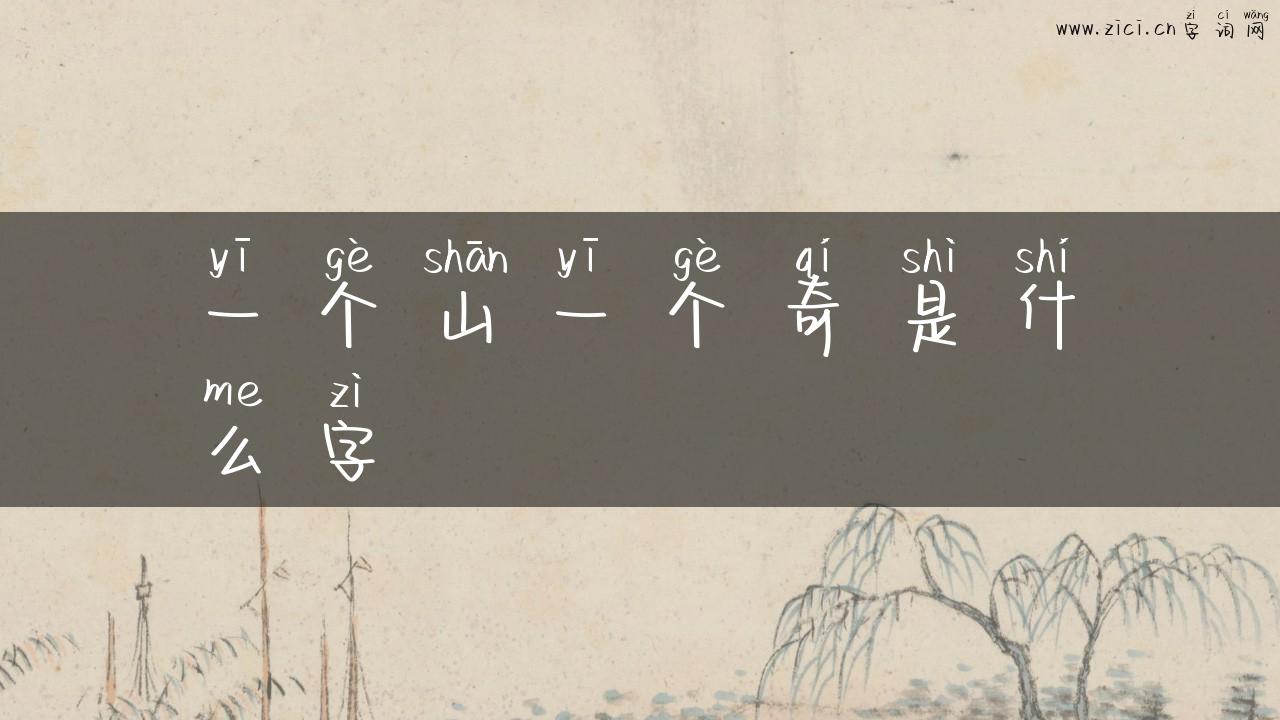 zì cí wǎng
www.zici.cn 字词网
yī gè shān yī gè qí shì shí
一个山一个奇是什
me zì
么字